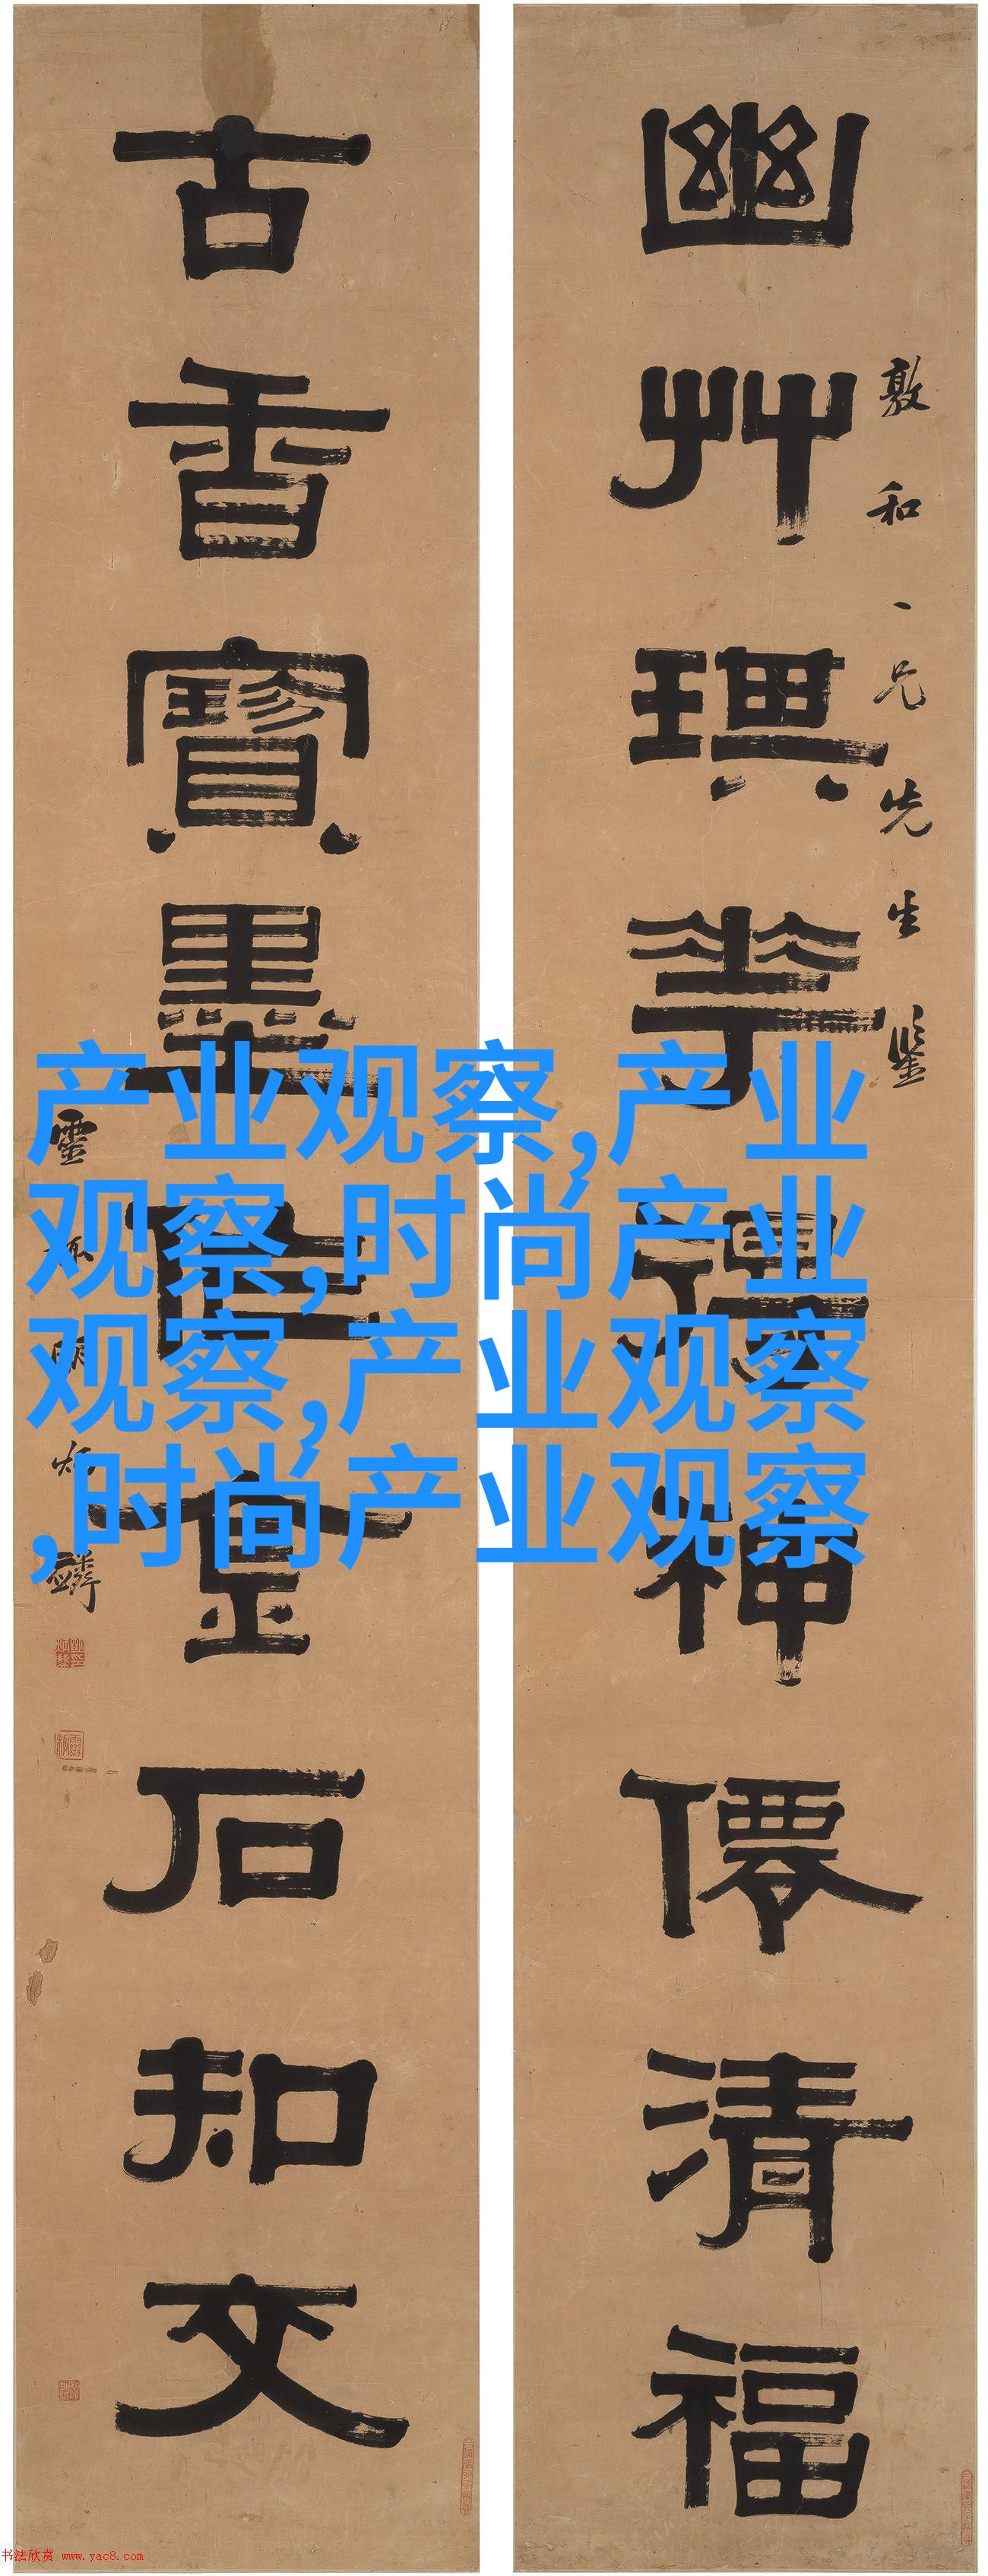 幽艸琪華得神僊清福
敦和一兄先生鉴
古香寶墨
金石知文
靈
炳
麟
产业观察,产业
观察,时尚产业
观察,产业观察
,时尚产业观察
书法欣赏 www.yac8.com